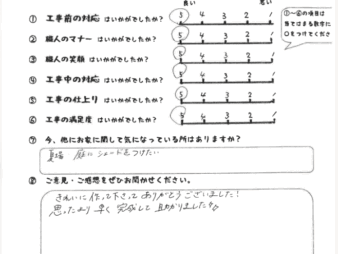 良い 悪い
① 工事前の対応 はいかがでしたか? 5 4 3 2 1
② 職人のマナー はいかがでしたか? 5 4 3 2 1
③ 職人の笑顔 はいかがでしたか? 5 4 3 2 1
④ 工事中の対応 はいかがでしたか? 5 4 3 2 1
⑤ 工事の仕上り はいかがでしたか? 5 4 3 2 1
⑥ 工事の満足度 はいかがでしたか? 5 4 3 2 1
①~⑥の項目は
当てはまる数字に
○をつけてくださ
⑦ 今、他にお家に関して気になっている所はありますか?
夏場 庭に シェードをつけたい
⑧ ご意見・ご感想をぜひお聞かせください。
きれいに 作って下さって ありがとうございました!
思ったより 早く 完成して 助かりました